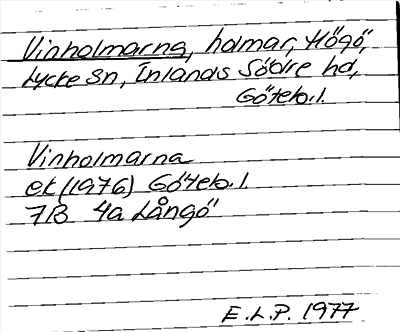 Vinholmarna, holmar, Högö,
Lycke sn, Inlands Södre hd,
Göteb. l.
Vinholmarna
ek (1976) Göteb. l.
7B 4a Långö
E.L.P. 1977